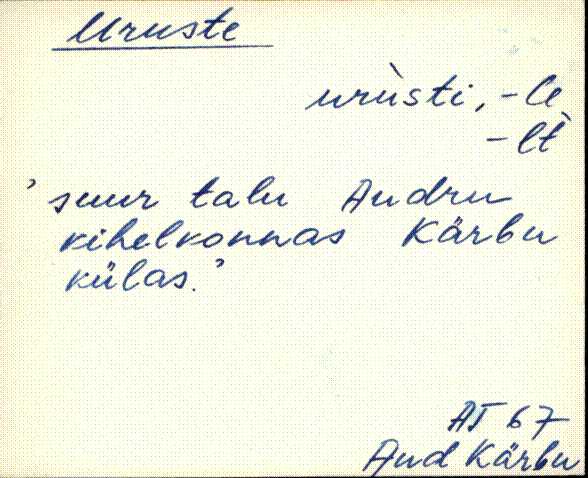 Uruste
urùsti, -le
-lt
' suur talu Audru
kihelkonnas Kärbu
külas.'
AT 67
Aud Kärbu